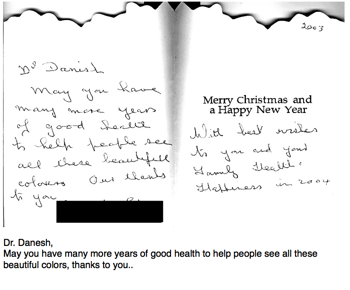 Dr Danish
May you have
many more years
of good health
to help people see
all these beautifull
colours Our thanks
to you
2003
Merry Christmas and
a Happy New Year
With best wishes
to you and your
family Health &
Happiness in 2004
Dr. Danesh,
May you have many more years of good health to help people see all these
beautiful colors, thanks to you..